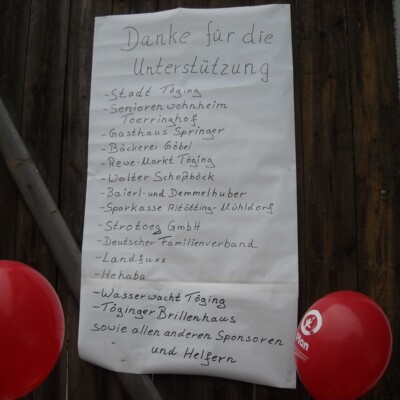 Danke für die
Unterstützung
- Stadt Töging
- Seniorenwohnheim
Toerringhof
- Gasthaus Springer
- Bäckerei Göbel
- Rewe-Markt Töging
- Walter Schoßböck
- Baierl und Demmelhuber
- Sparkasse Altötting-Mühldorf
- Strotoeg GmbH
- Deutscher Familienverband
- Landfuxx
- Hehaba
- Wasserwacht Töging
- Töginger Brillenhaus
sowie allen anderen Sponsoren
und Helfern
Plan